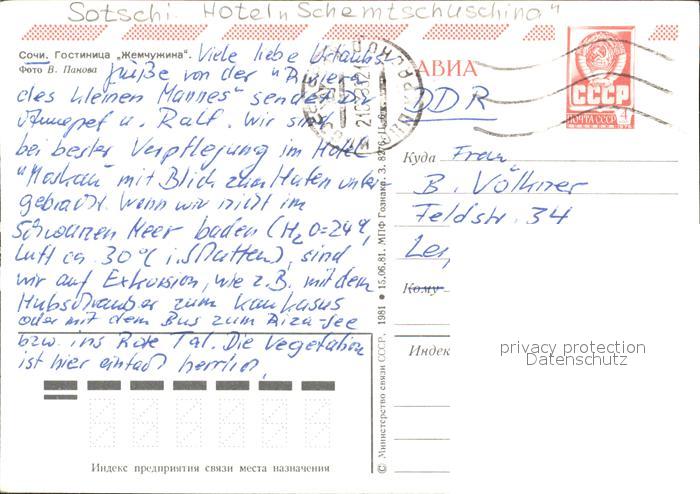 Sotschi. Hotel „Schemtschuschina"
Сочи. Гостиница „Жемчужина".
Фото В. Панова
Viele liebe Urlaubs-
grüße von der "Riviera
des kleinen Mannes" sendet Dir
Annegret u. Ralf. Wir sind
bei bester Verpflegung im Hotel
"Moskau" mit Blick zum Hafen unter
gebracht. Wenn wir nicht im
Schwarzen Meer baden (H₂O=24°,
Luft ca. 30°C i. Schatten), sind
wir auf Exkursion, wie z.B. mit dem
Hubschrauber zum Kaukasus
oder mit dem Bus zum Riza-See
bzw. ins Rote Tal. Die Vegetation
ist hier einfach herrlich,
АВИА
DDR
СССР
ПОЧТА СССР
4
Куда Frau
B. Völkner
Feldstr. 34
Кому
Индек
privacy protection
Datenschutz
© Министерство связи СССР. 1981 • 15.06.81. МПФ Гознака. З.
Индекс предприятия связи места назначения